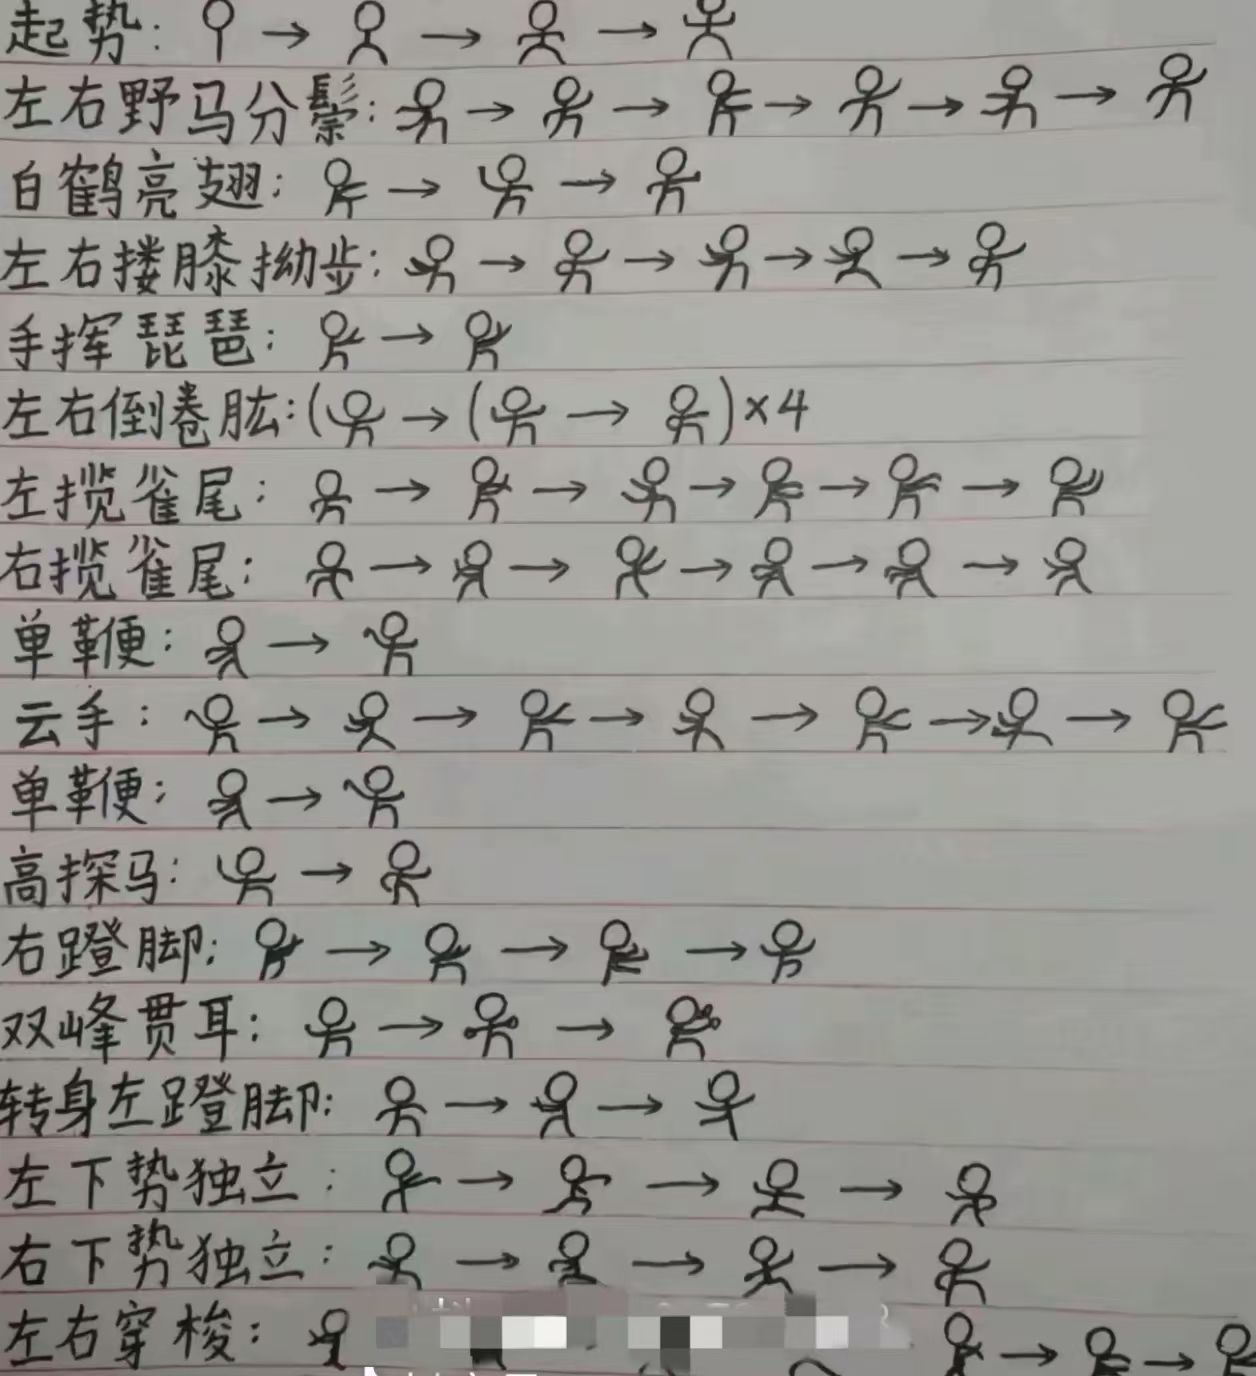 起势:
左右野马分鬃:
白鹤亮翅:
左右搂膝拗步:
手挥琵琶:
左右倒卷肱:( ( )×4
左揽雀尾:
右揽雀尾:
单鞭:
云手:
单鞭:
高探马:
右蹬脚:
双峰贯耳:
转身左蹬脚:
左下势独立:
右下势独立:
左右穿梭: